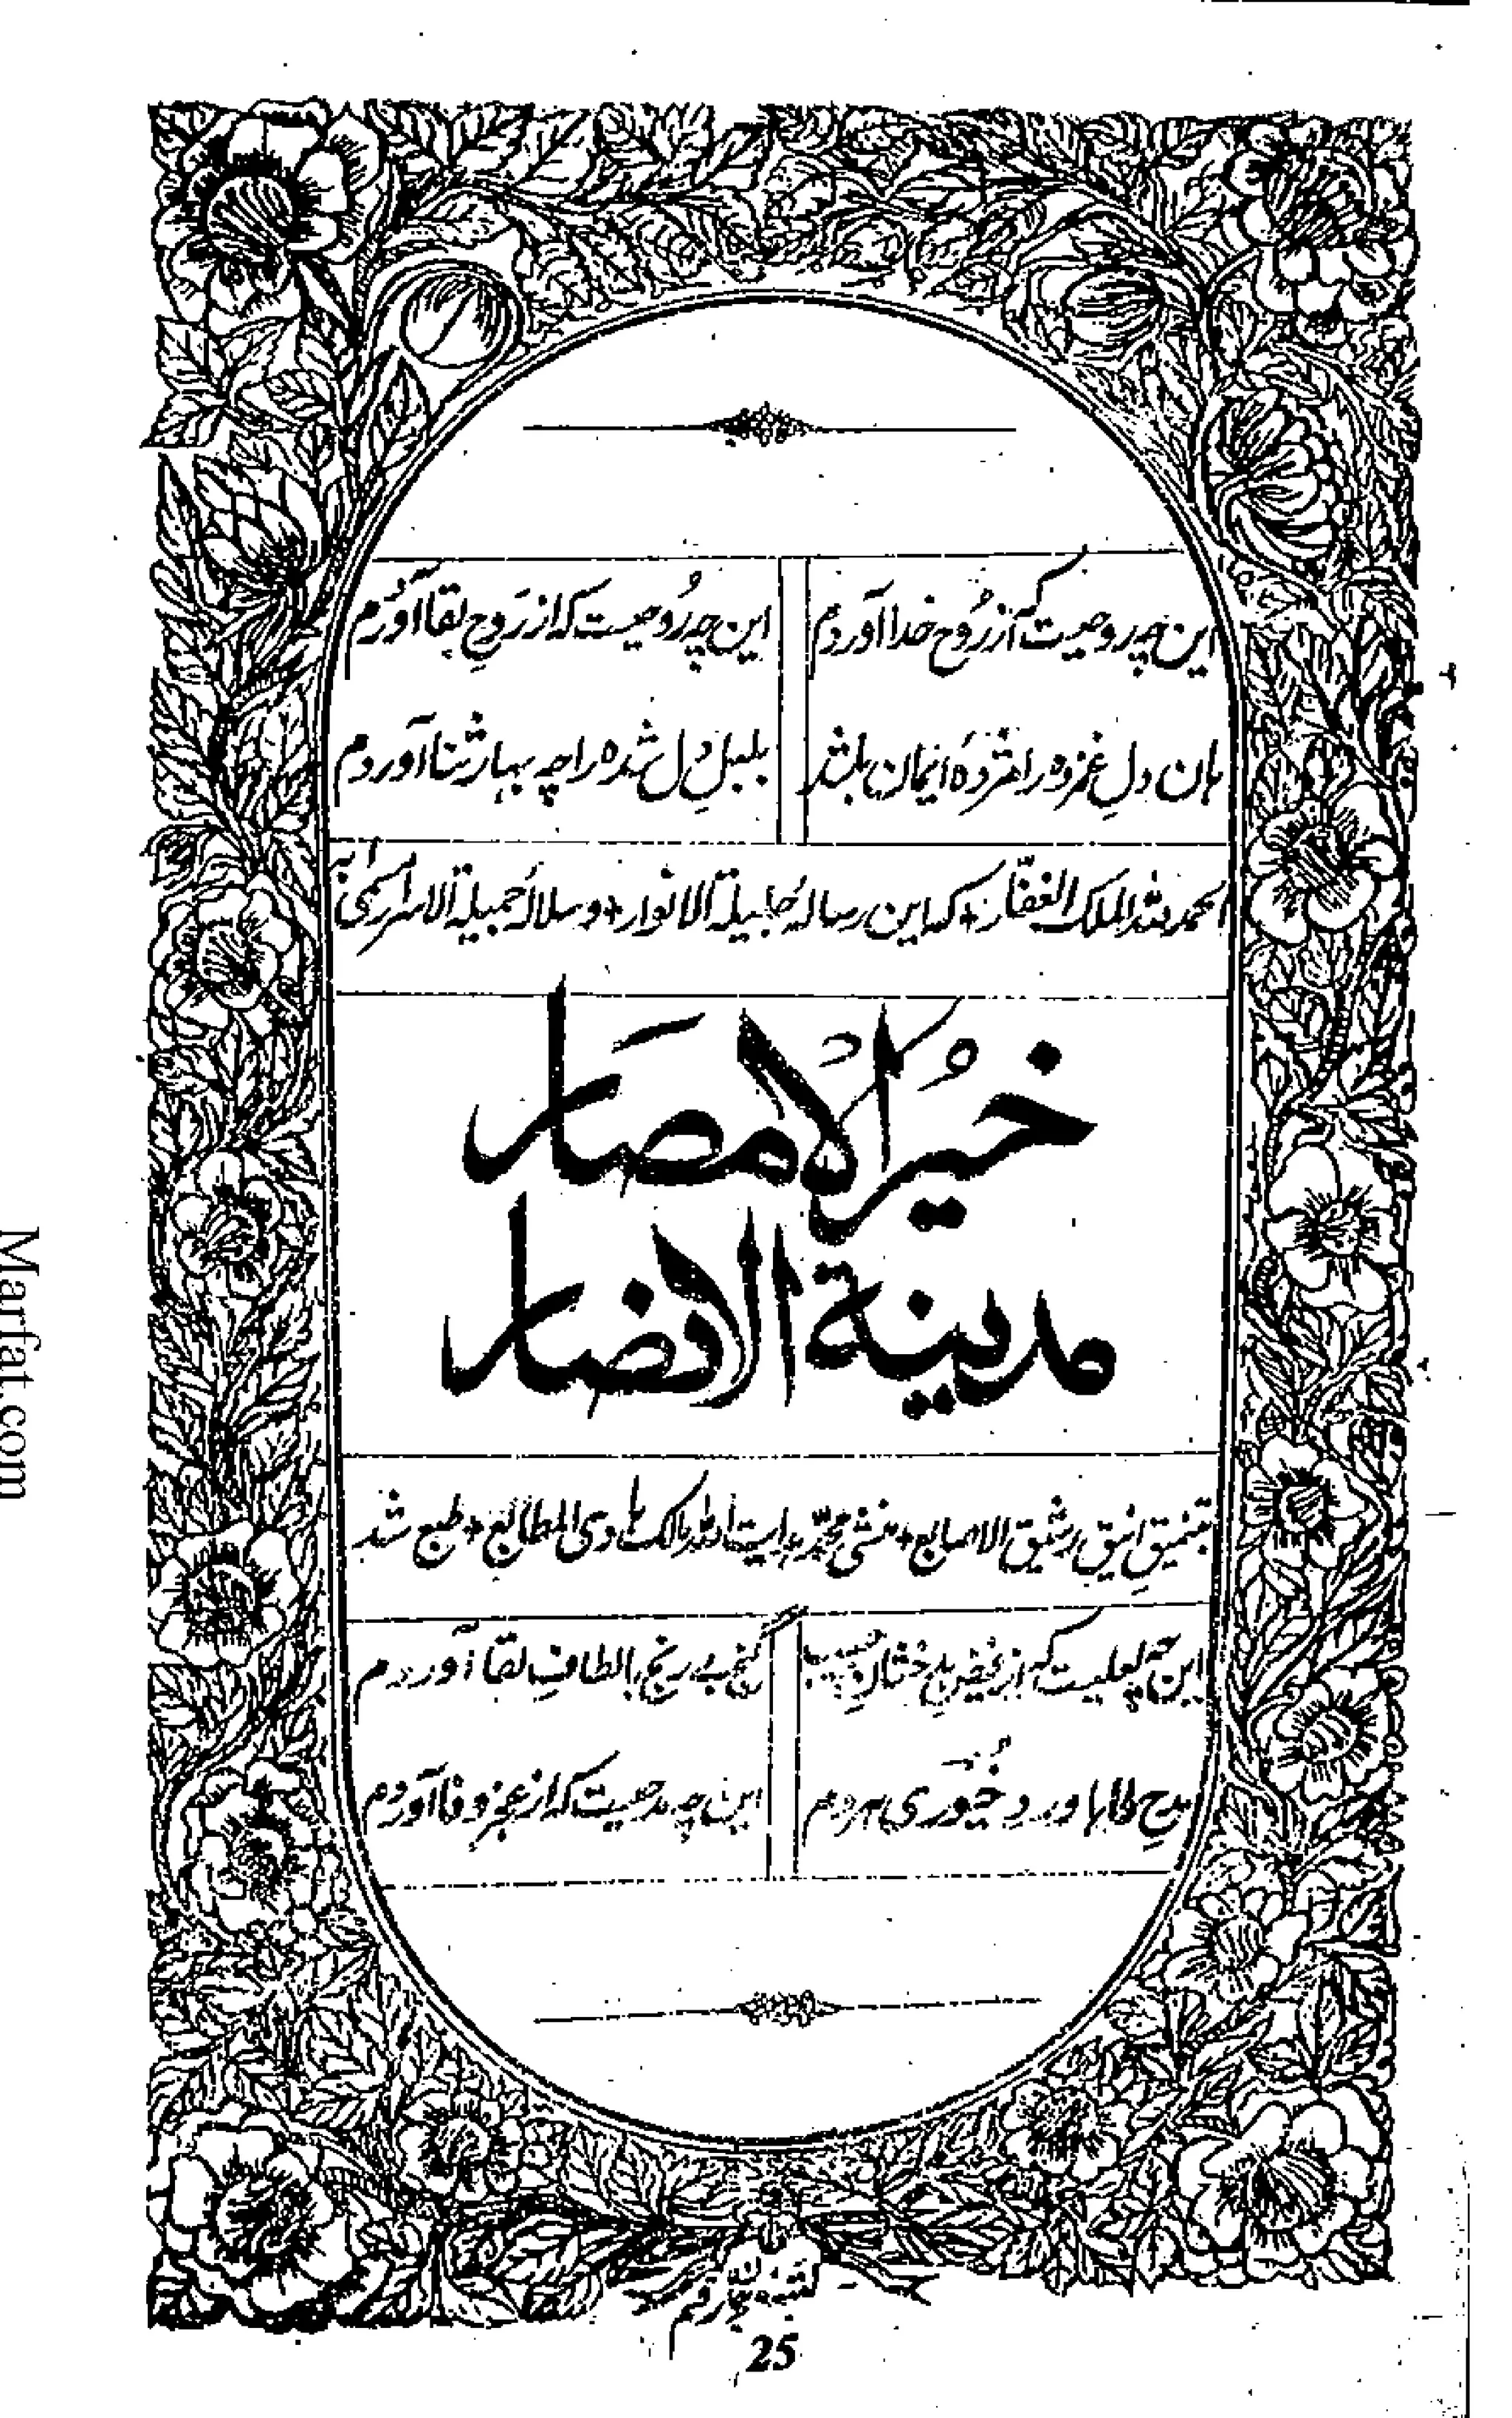 این چہ روحیست کہ از رُوح خدا آوردم این چہ رُوحیست کہ از رَوحِ بقا آوردم
ہان دلِ غمزدہ را مژدۂ ایمان باشد بلبلِ دل شدہ را چہ بہار ثنا آوردم
الحمد للہ الملک الغفّار + کہ این رسالۂ جلیلۃ الانوار + وسلالۂ جمیلۃ الاسرار مسمّٰی بہ
خیرُ الامصَار
مدینۃ الانصار
بتنمیقِ انیق رشیق الاصابع + منشی محمّد ہدایت اللہ مالک ہادی المطابع + طبع شد
این چہ لعلیست کہ از گنج بے رنج بالطافِ لقا آوردم
مدحِ طٰہٰ و این چہ مدحیست کہ از عجز و فا آوردم
25
Marfat.com